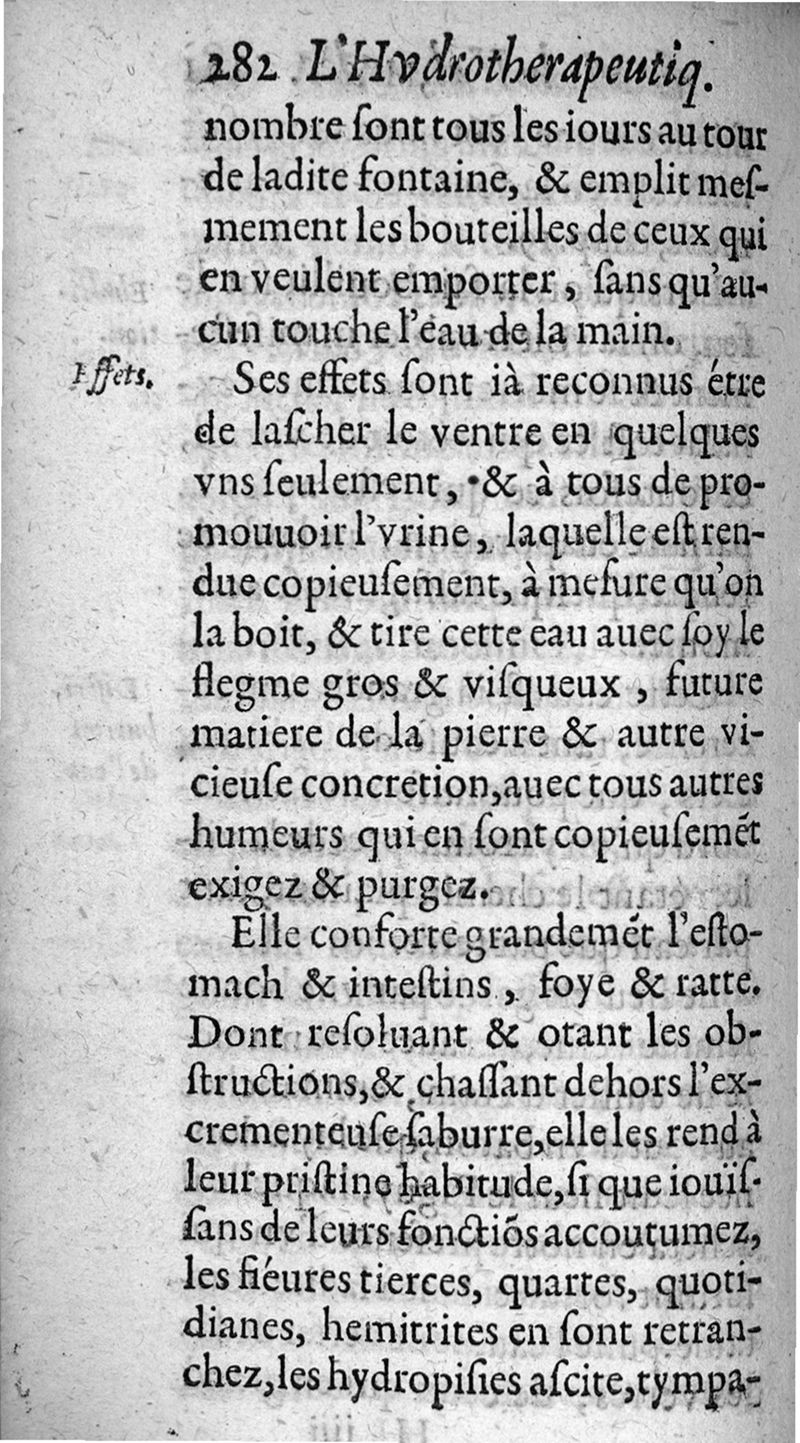 282 L'Hydrotherapeutiq.
nombre ſont tous les iours au tour
de ladite fontaine, & emplit meſ-
mement les bouteilles de ceux qui
en veulent emporter, ſans qu'au-
cun touche l'eau de la main.
Effets.
Ses effets ſont ià reconnus étre
de laſcher le ventre en quelques
vns ſeulement, & à tous de pro-
mouuoir l'vrine, laquelle eſt ren-
due copieuſement, à meſure qu'on
la boit, & tire cette eau auec ſoy le
flegme gros & viſqueux, future
matiere de la pierre & autre vi-
cieuſe concretion, auec tous autres
humeurs qui en ſont copieuſemẽt
exigez & purgez.
Elle conforte grandemẽt l'eſto-
mach & inteſtins, foye & ratte.
Dont reſoluant & otant les ob-
ſtructions, & chaſſant dehors l'ex-
crementeuſe ſaburre, elle les rend à
leur priſtine habitude, ſi que iouïſ-
ſans de leurs fonctiõs accoutumez,
les fiéures tierces, quartes, quoti-
dianes, hemitrites en ſont retran-
chez, les hydropiſies aſcite, tympa-